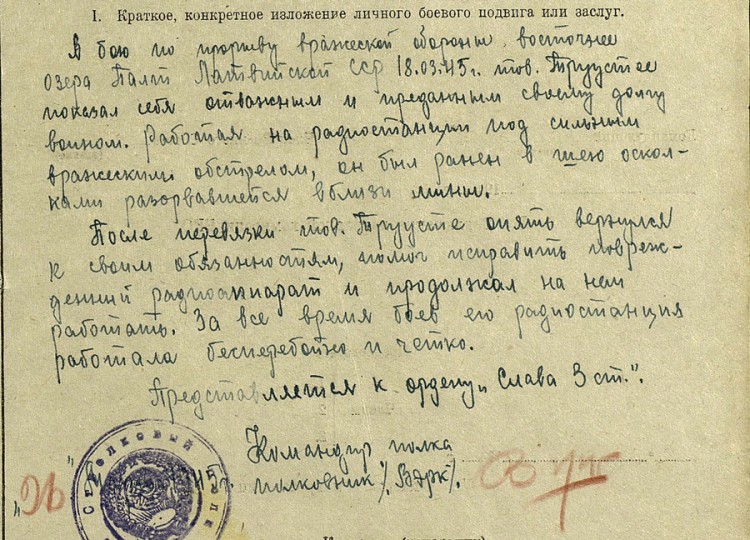 I. Краткое, конкретное изложение личного боевого подвига или заслуг.
В бою по прорыву вражеской обороны восточнее
озера Палт Латвийской ССР 18.03.45г. тов. Труустее
показал себя отважным и преданным своему долгу
воином. Работая на радиостанции под сильным
вражеским обстрелом, он был ранен в шею оскол-
ками разорвавшейся вблизи мины.
После перевязки тов. Транусте опять вернулся
к своим обязанностям, помог исправить повреж-
денный радиоаппарат и продолжал на нем
работать. За все время боев его радиостанция
работала бесперебойно и четко.
Представляется к ордену „Слава 3 ст.".
Командир полка
полковник /. Вырк/.
"26"
45 г.
СТРЕЛКОВЫЙ